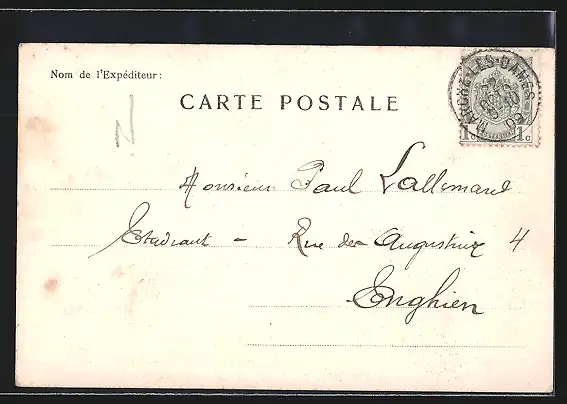 Nom de l'Expéditeur:
CARTE POSTALE
MARCHE-LES-DAMES
1c 1c
N
Monsieur Paul Lallemand
Etudiant - Rue des Augustins 4
Enghien